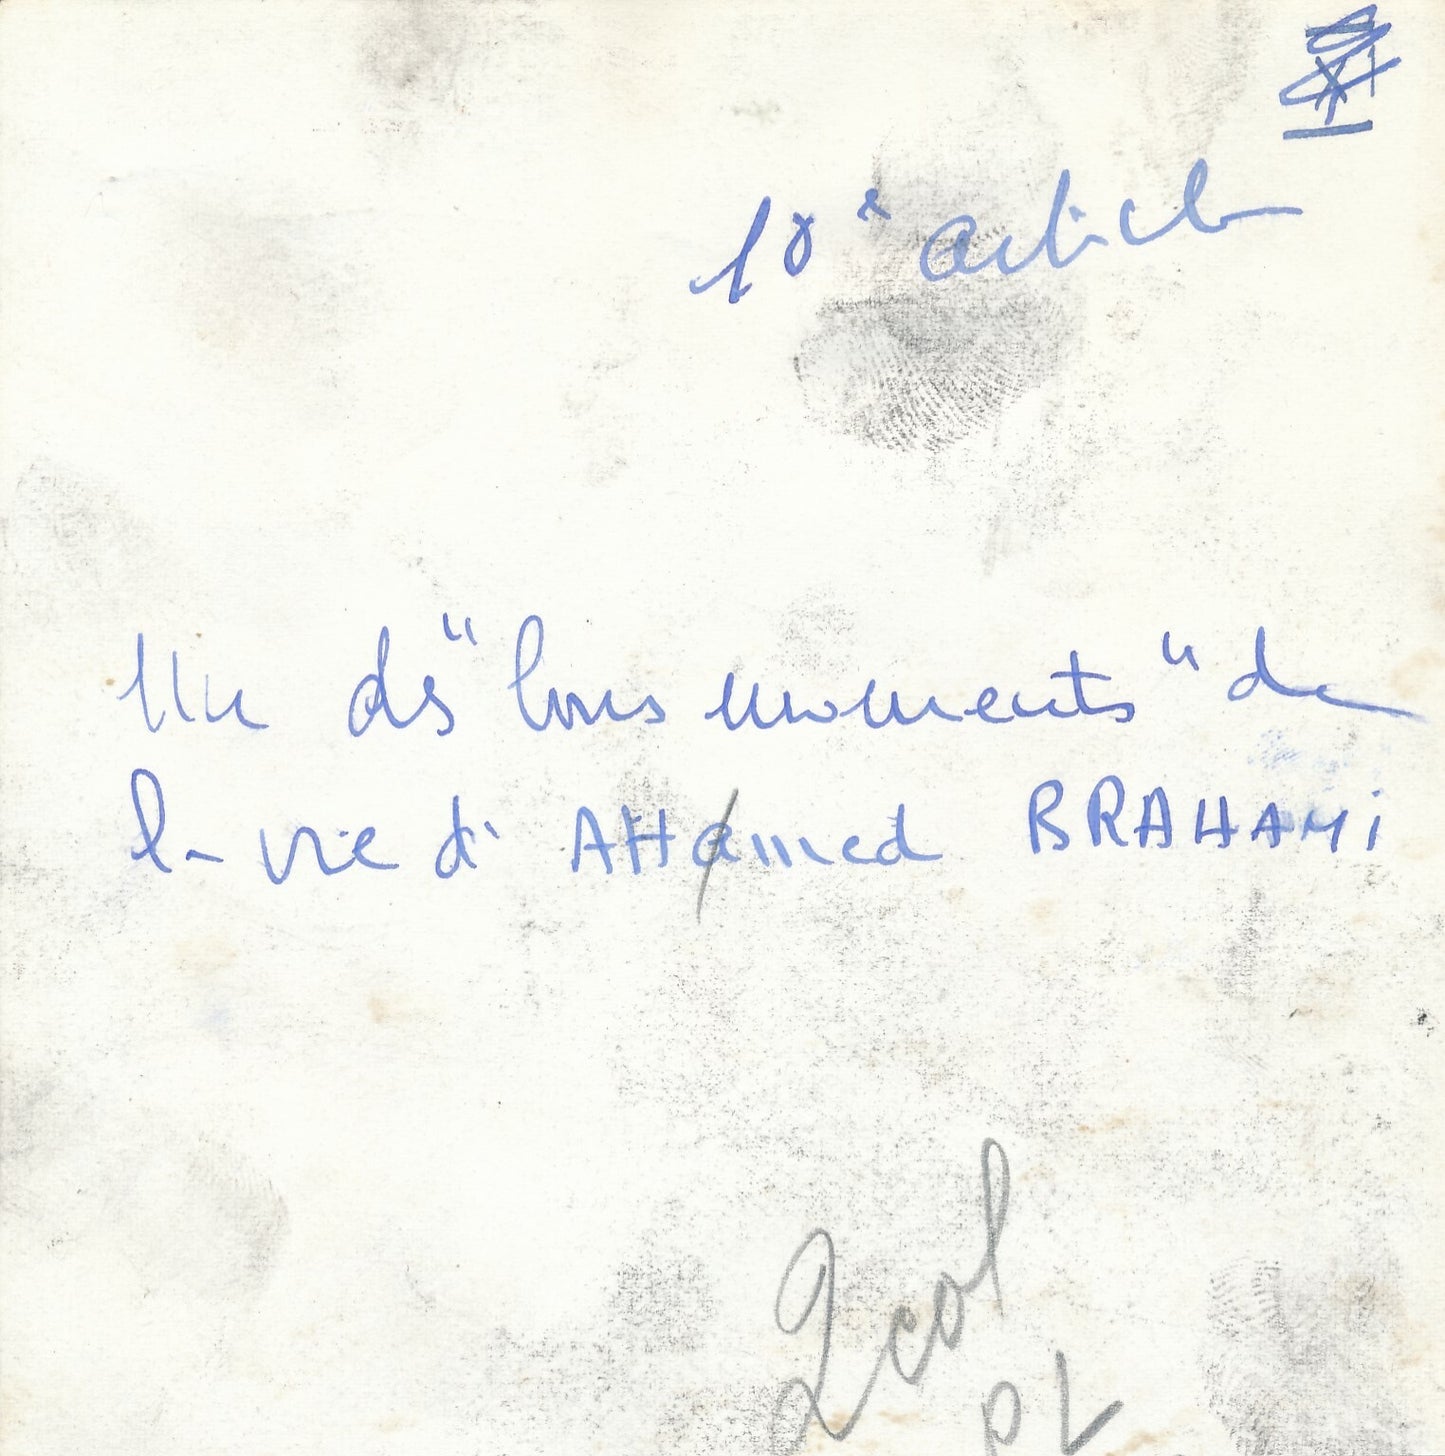 10e article
Un des "bons moments" de
la vie d' AHamed BRAHAMi
2 col
PL